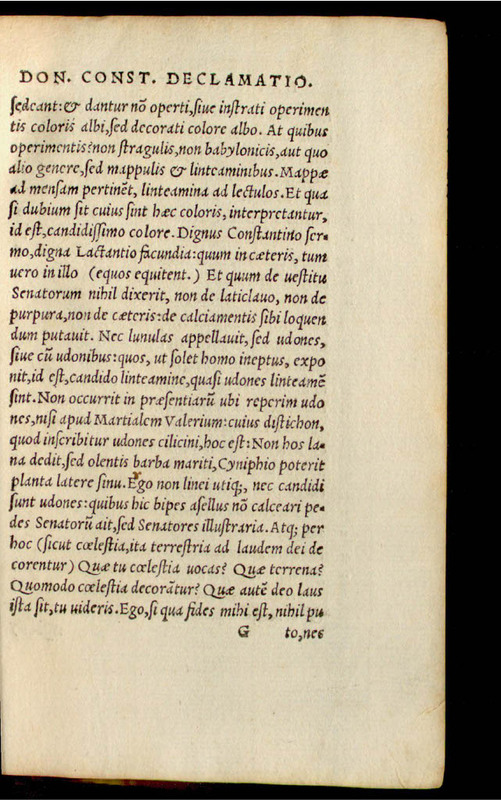 DON. CONST. DECLAMATIO.
sedeant:& dantur nõ operti,siue instrati operimen
tis coloris albi,sed decorati colore albo. At quibus
operimentis?non stragulis,non babylonicis,aut quo
alio genere,sed mappulis & linteaminibus.Mappæ
ad mensam pertinẽt, linteamina ad lectulos.Et qua
si dubium sit cuius sint hæc coloris, interpretantur,
id est,candidissimo colore. Dignus Constantino ser-
mo,digna Lactantio facundia:quum in cæteris, tum
uero in illo (equos equitent.) Et quum de uestitu
Senatorum nihil dixerit, non de laticlauo, non de
purpura,non de cæteris:de calciamentis sibi loquen
dum putauit. Nec lunulas appellauit,sed udones,
siue cũ udonibus:quos, ut solet homo ineptus, expo
nit,id est,candido linteamine,quasi udones linteamẽ
sint.Non occurrit in præsentiarũ ubi reperim udo
nes,nisi apud Martialem Valerium:cuius distichon,
quod inscribitur udones cilicini,hoc est:Non hos la-
na dedit,sed olentis barba mariti,Cyniphio poterit
planta latere sinu.Ego non linei utiq;, nec candidi
sunt udones:quibus hic bipes asellus nõ calceari pe-
des Senatorũ ait,sed Senatores illustraria. Atq; per
hoc (sicut cœlestia,ita terrestria ad laudem dei de
corentur) Quæ tu cœlestia uocas? Quæ terrena?
Quomodo cœlestia decorãtur? Quæ autẽ deo laus
ista sit,tu uideris.Ego,si qua fides mihi est, nihil pu
G to,nes